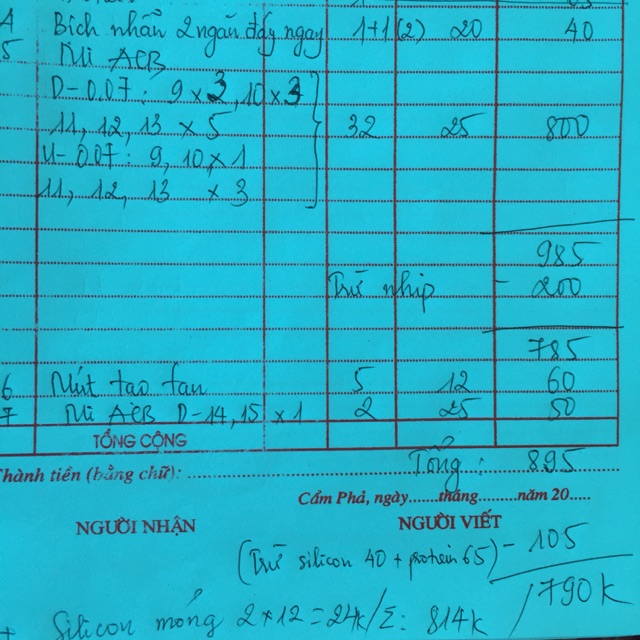 4 Bích nhấn 2 ngăn đáy ngay 1+1(2) 20 40
5 Mi ACB
D-0.07: 9 x 3, 10 x 3
11, 12, 13 x 5 32 25 800
U-0.07: 9, 10, x 1
11, 12, 13 x 3
985
Trừ nhíp - 200
785
6 Mút tạo tan 5 12 60
7 Mi ACB D-14,15 x 1 2 25 50
TỔNG CỘNG
Thành tiền (bằng chữ): Tổng: 895
Cẩm Phả, ngày......tháng.........năm 20.....
NGƯỜI NHẬN NGƯỜI VIẾT
(Trừ silicon 40 + protein 65) - 105
790k
+ Silicon mỏng 2 x 12 = 24k / Σ: 814k